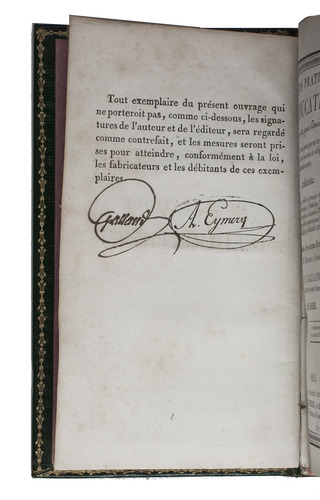 Tout exemplaire du présent ouvrage qui
ne porteroit pas, comme ci-dessous, les signa-
tures de l'auteur et de l'éditeur, sera regardé
comme contrefait, et les mesures seront pri-
ses pour atteindre, conformément à la loi,
les fabricateurs et les débitans de ces exem-
plaires.
A. Eymery